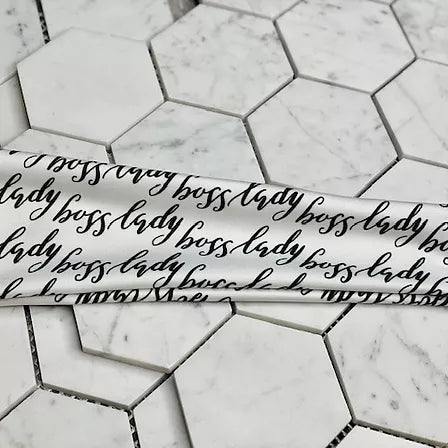 boss lady
lady boss lady boss lady
lady boss lady boss lady boss
lady boss lady boss lady boss
boss lady